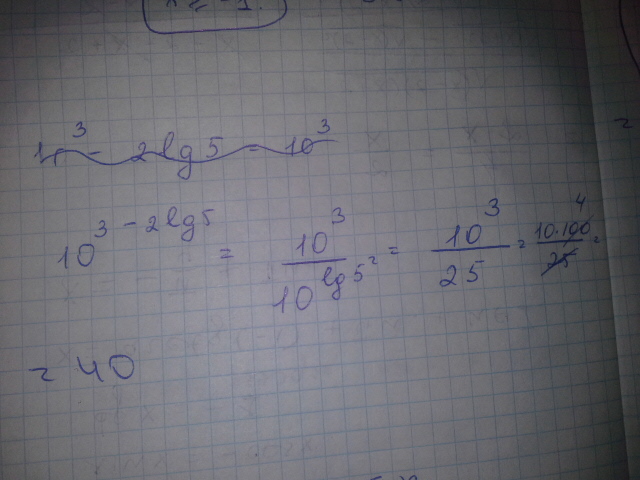 10³ - 2lg5 = 10³
10^(3 - 2lg5) = 10³/10^(lg5²) = 10³/25 = 10·100/25 =
= 40